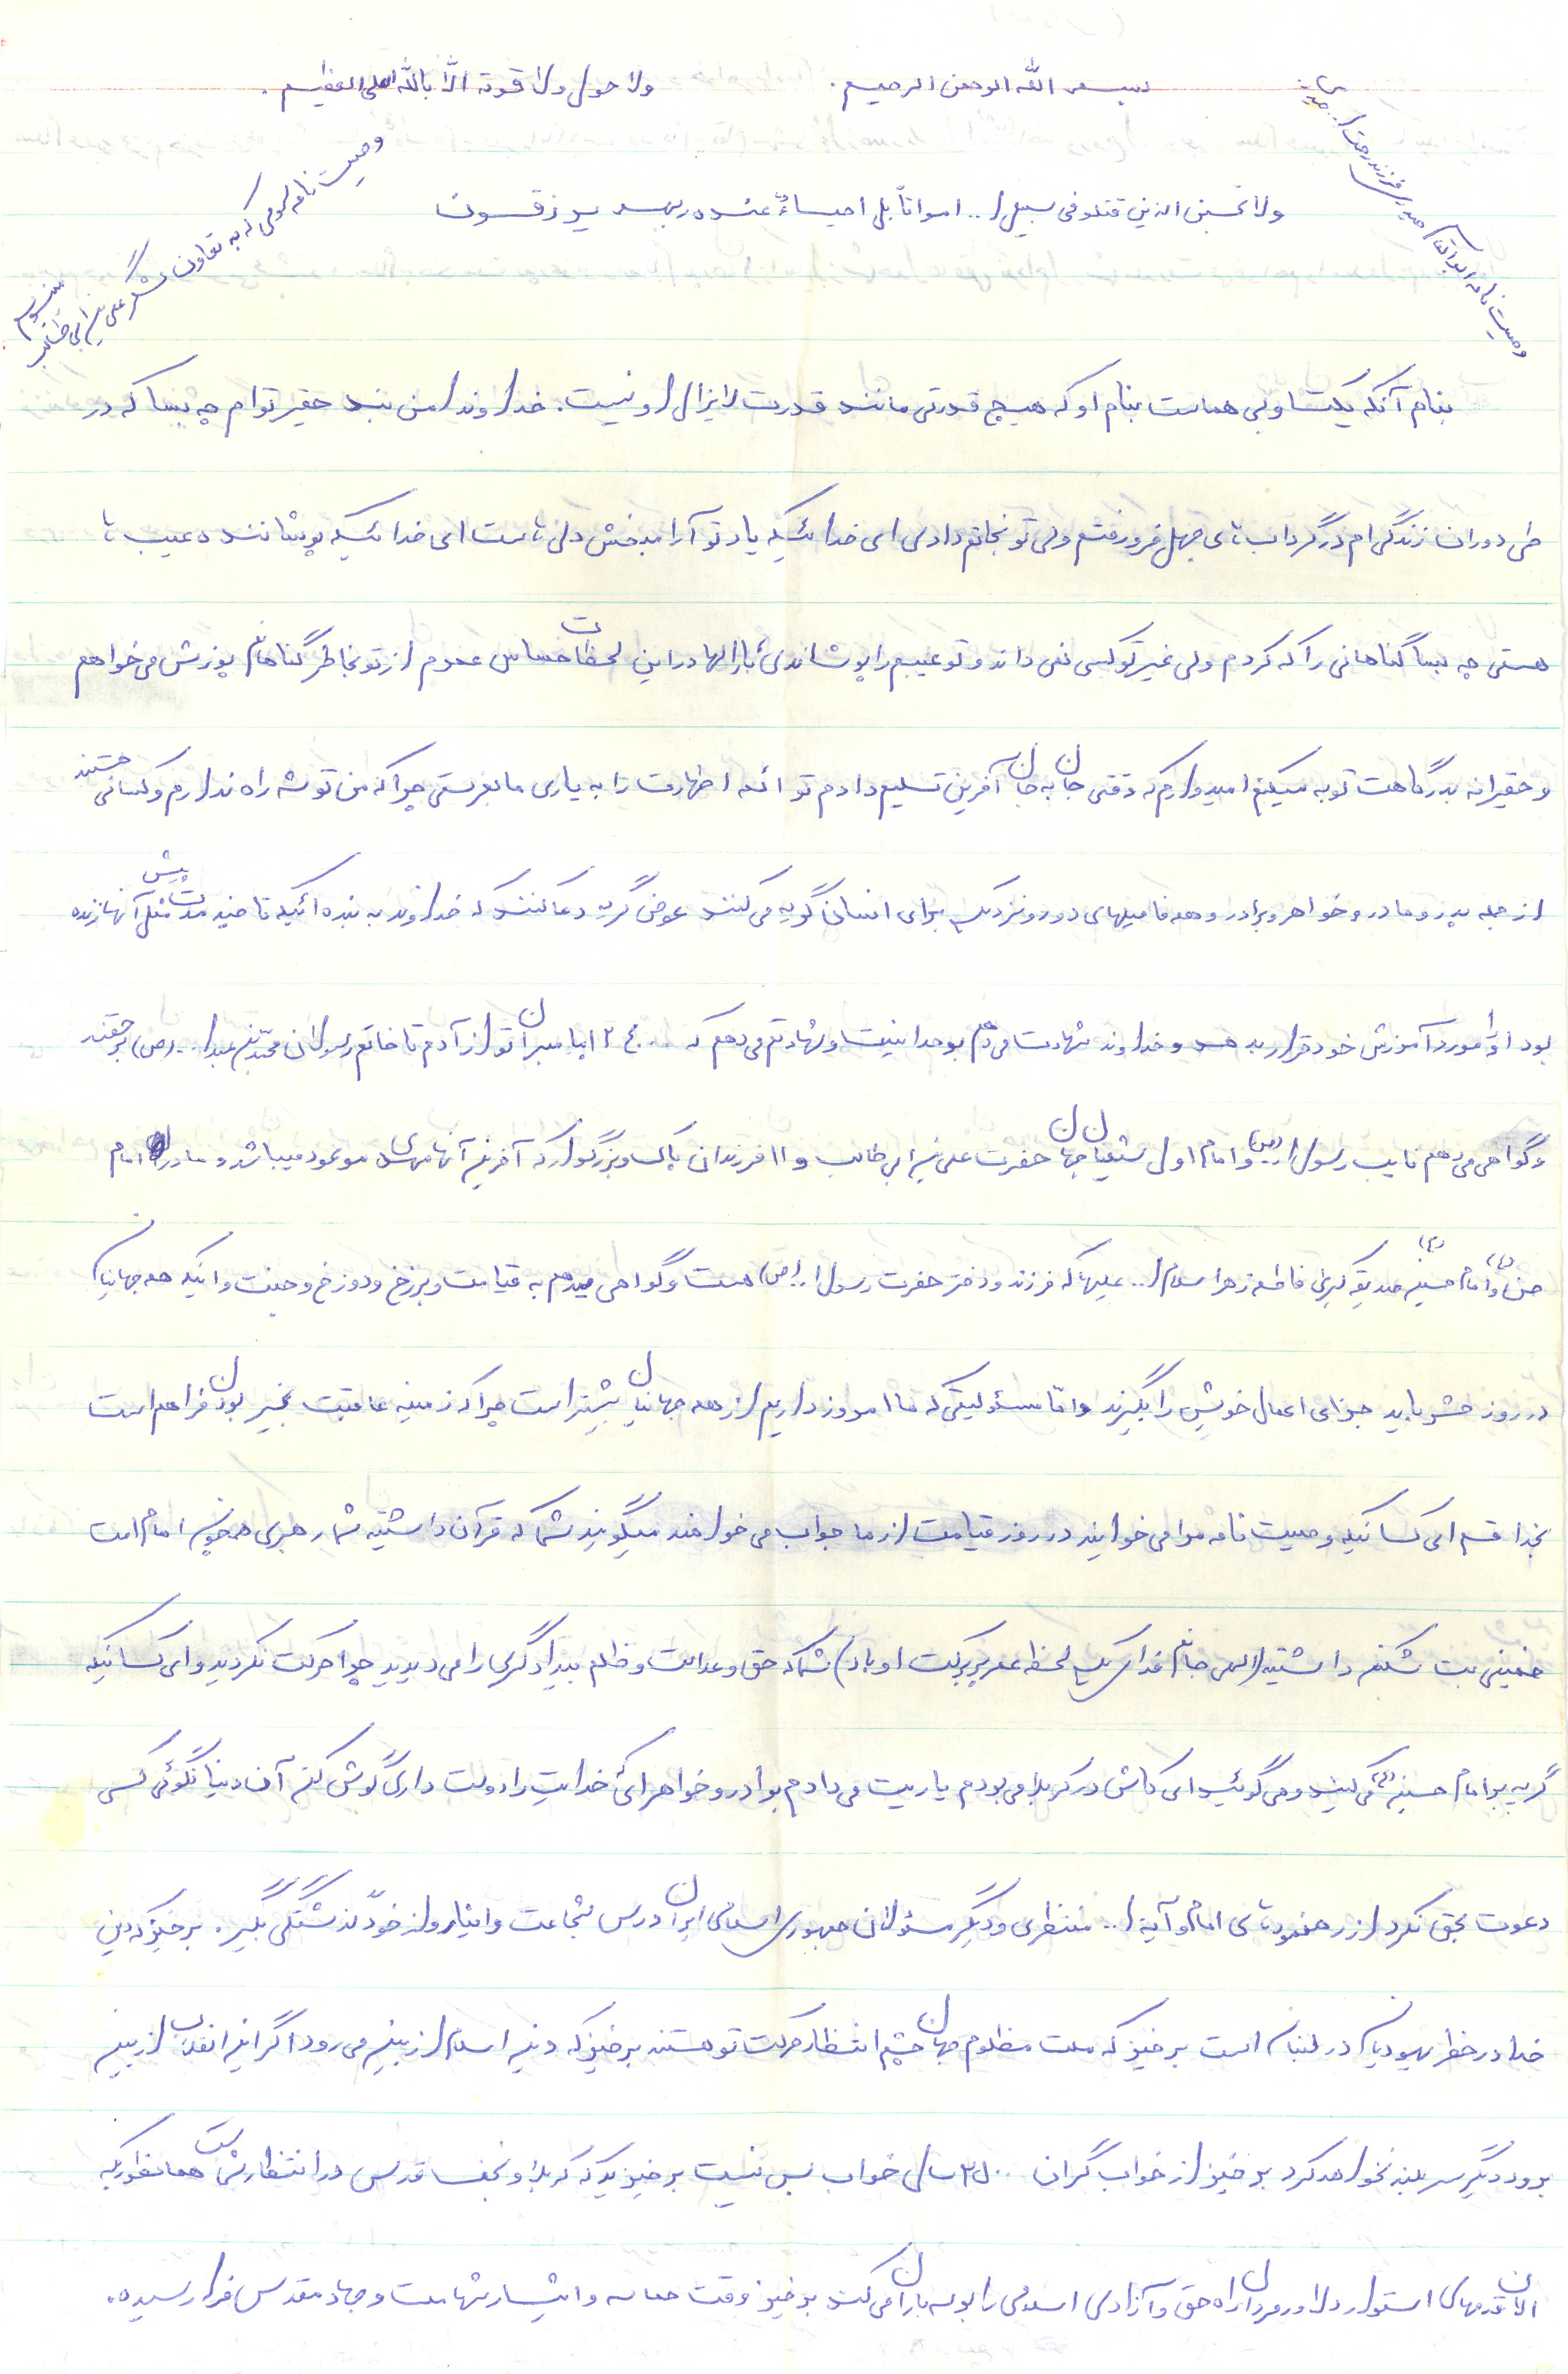 بسم الله الرحمن الرحیم. ولا حول ولا قوة الّا بالله العلی العظیم.
وصیت نامه ابوالقاسم حیدری فرزند رحمت ا...
وصیت نامه دومی که به تعاون لشگر علی بن ابی طالب
ولا تحسبن الذین قتلو فی سبیل ا... امواتاً بل احیاءٌ عنده ربهم یرزقون
بنام آنکه یکتا و بی همتاست بنام او که هیچ قدرتی مانند قدرت لایزال او نیست. خداوندا من بنده حقیر توام چه بسا که در
طی دوران زندگی ام در گرداب های جهل فرو رفتم ولی تو نجاتم دادی ای خدائیکه یاد تو آرامبخش دلهاست ای خدائیکه پوشاننده عیب ها
هستی چه بسا گناهانی را که کردم ولی غیر تو کسی نمی داند و تو عیبم را پوشاندی بارالها در این لحظات حساس عمرم از تو بخاطر گناهانم پوزش می خواهم
و حقیرانه بدرگاهت توبه میکنم امیدوارم که وقتی جان به جان آفرین تسلیم دادم تو ائمه اطهارت را به یاری ما بفرستی چرا که من توشه راه ندارم و کسانی هستند
از جمله پدر و مادر و خواهر و برادر و همه فامیلهای دور و نزدیک برای انسان گریه می کنند عوض گریه دعا کنند که خداوند به بنده ائیکه تا چند مدت پیش مثل آنها زنده
بود او را مورد آمورش خود قرار بدهد و خداوند شهادت می دهم بوحدانیت و شهادتم می دهم که ۱۲۴۰۰۰ پیامبران تو از آدم تا خاتم رسولان محمد بن عبدا... (ص) برحقند
و گواهی می دهم نایب رسول ا... (ص) و امام اول شیعیان جهان حضرت علی بن ابی طالب و ۱۱ فرزندان پاک و بزرگوار که آخرین آنها مهدی موعود میباشد و مادر امام
حسن (ع) و امام حسین (ع) صدیقه کبری فاطمه زهرا سلام ا... علیها که فرزند و دختر حضرت رسول ا... (ص) هست و گواهی میدهم به قیامت و برزخ و دوزخ و جنت و اینکه همه جهانیان
در روز حشر باید جزای اعمال خویش را بگیرند و اما مسئولیتی که ما امروز داریم از همه جهانیان بیشتر است چرا که زمینه عاقبت بخیر بودن فراهم است
بخدا قسم ای کسانیکه وصیت نامه مرا می خوانید در روز قیامت از ما جواب می خواهند میگویند شما که قرآن داشتید شما رهبری همچون امام امت
خمینی بت شکن داشتید (الهی جانم فدای یک لحظه عمر پر برکت او باد) شما که حق و عدالت و ظلم بیدادگری را می دیدید چرا حرکت نکردید و ای کسانیکه
گریه بر امام حسین (ع) می کنید و می گوئید ای کاش در کربلا می بودم یاریت می دادم برادر و خواهر اگر خدایت را دوست داری گوش کن آن دنیا نگوئی کسی
دعوت بحق نکرد از رهنمودهای امام و آیة ا... منتظری و دیگر مسئولان جمهوری اسلامی ایران درس شجاعت و ایثار و از خود گذشتگی بگیر. برخیز که دین
خدا در خطر یهودیان در لبنان است برخیز که ملت مظلوم جهان چشم انتظار حرکت تو هستند برخیز که دین اسلام از بین می رود اگر این انقلاب از بین
برود دیگر سر بلند نخواهد کرد برخیز از خواب گران ۲۵۰۰ سال خواب بس نیست برخیزید که کربلا و نجف و قدس در انتظار شماست همانطوریکه
الان قدمهای استوار دلاور مردان راه حق و آزادی اسلامی را بوسه باران می کند برخیز وقت حماسه و ایثار شهامت و جهاد مقدس فرا رسیده.